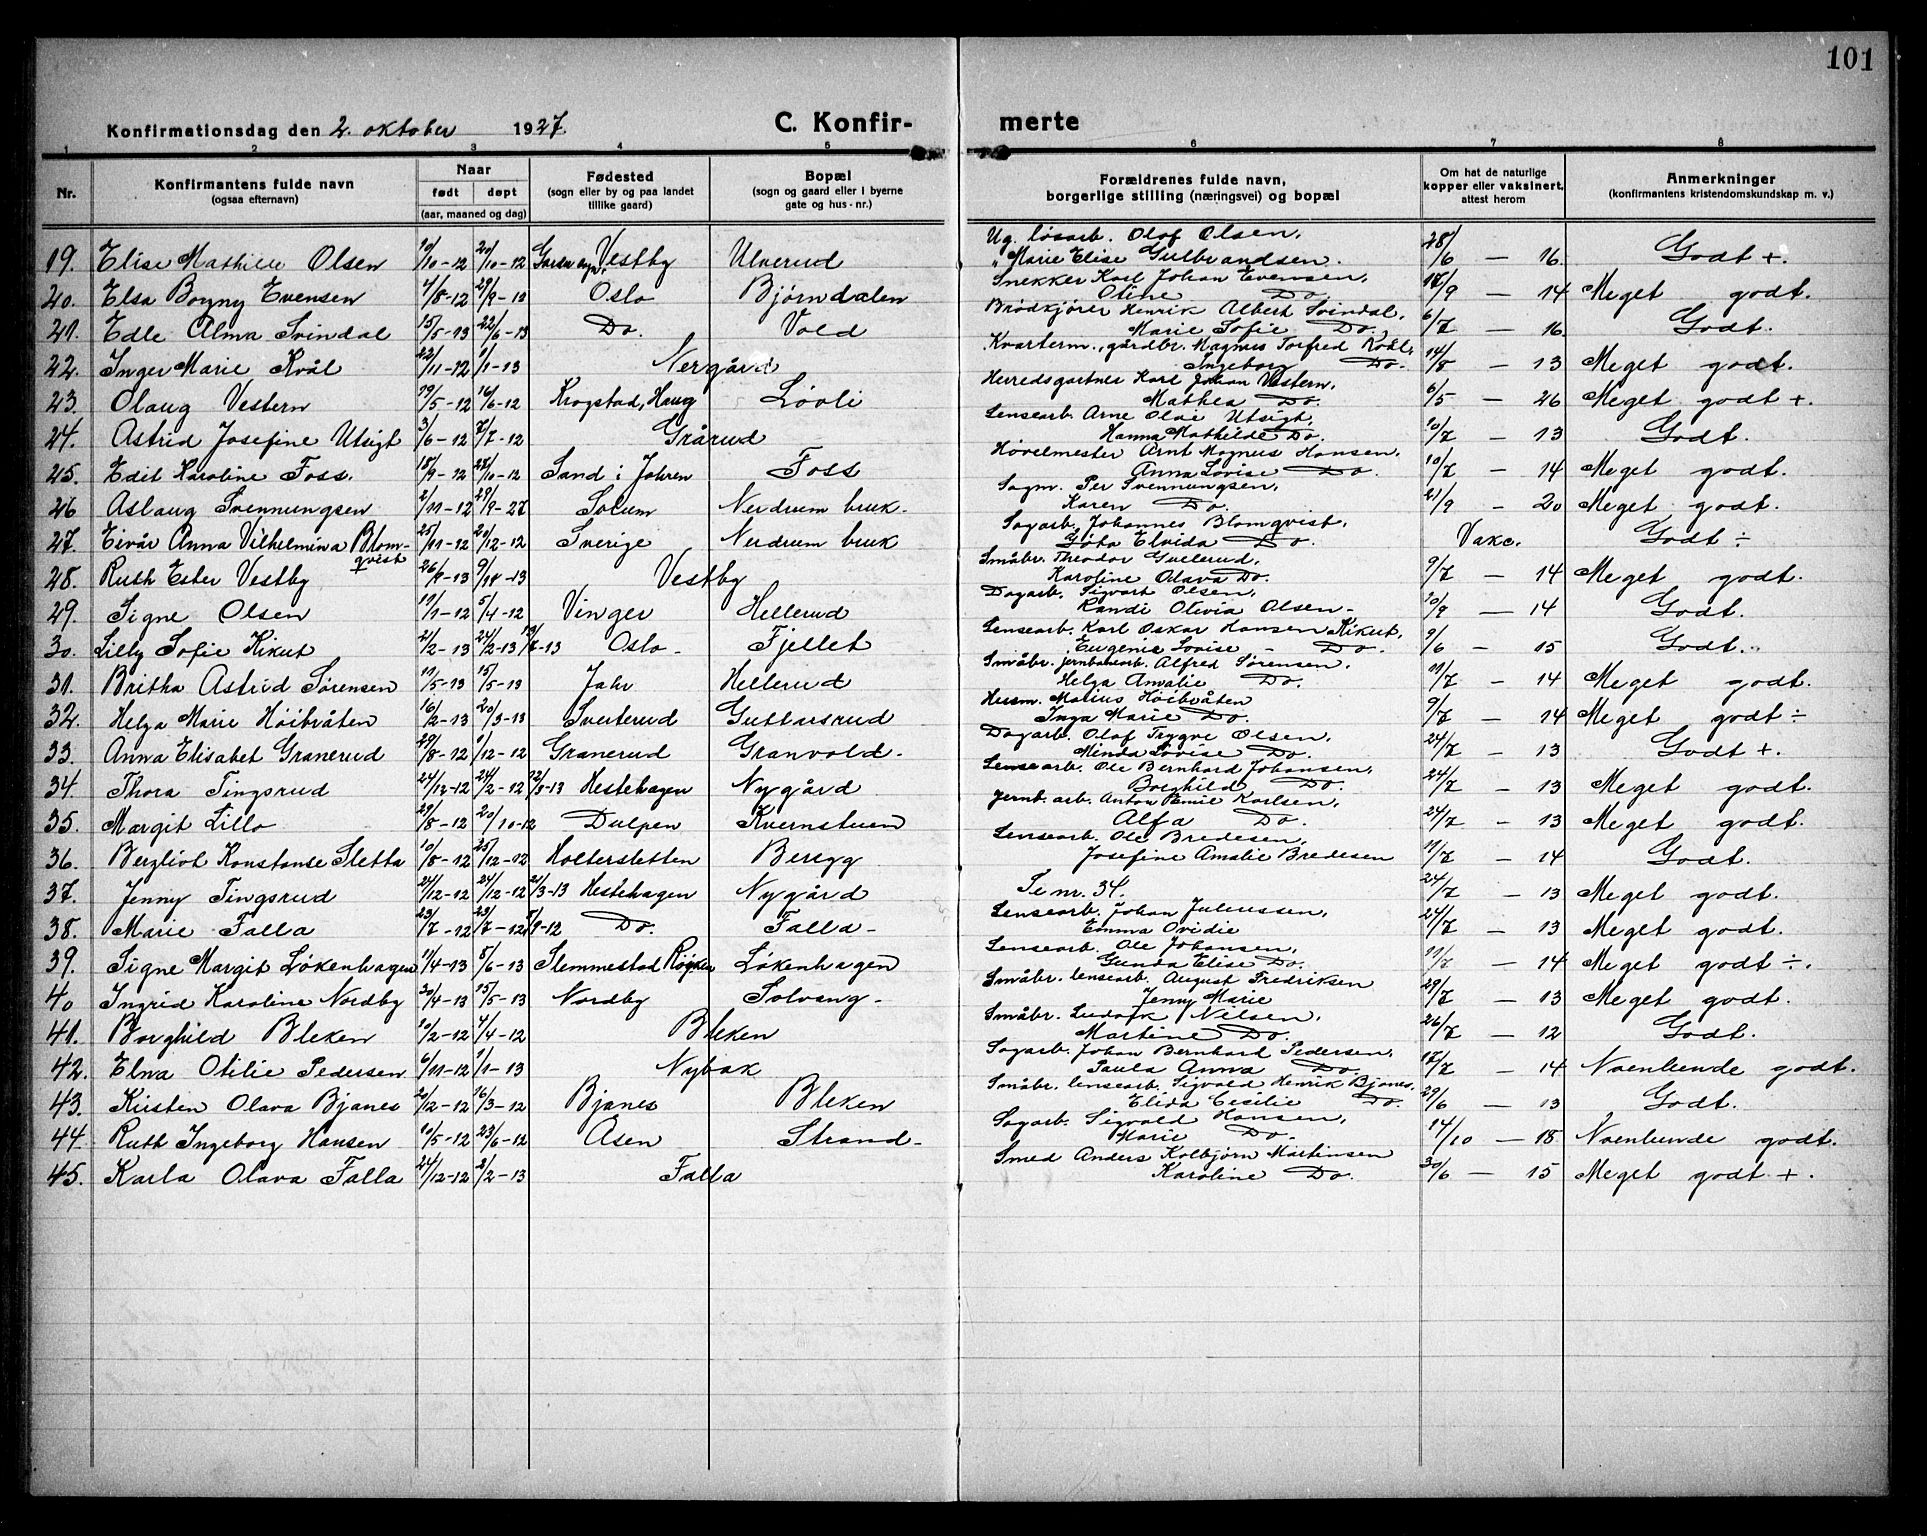 101
Konfirmationsdag den 2. oktober 1927. C. Konfir- merte
1 2 3 4 5 6 7 8
Nr. Konfirmantens fulde navn (ogsaa efternavn) Naar født døpt (aar, maaned og dag) Fødested (sogn eller by og paa landet tillike gaard) Bopæl (sogn og gaard eller i byerne gate og hus-nr.) Forældrenes fulde navn, borgerlige stilling (næringsvei) og bopæl Om hat de naturlige kopper eller vaksinert, attest herom Anmerkninger (konfirmantens kristendomskundskap m. v.)
19. Elise Mathilde Olsen 10/10-12 20/10-12 Vestby Ulverud Ug. løsarb. Olof Olsen, " Marie Elise Gulbrandsen. 28/6 - 16. Godt +.
20. Elsa Borgny Evensen 7/8-12 29/9-12 Oslo Bjørndalen Snekker Karl Johan Evensen, Otine Do. 18/9 - 14 Meget godt.
21. Edle Alma Svindal 15/5-13 22/6-13 Do. Vold Brødkjører Henrik Albert Svindal, Marie Sofie Do. 6/7 - 16 Godt.
22. Inger Marie Kvål 22/11-12 1/1-13 Nergård Kvarterm., gårdbr. Magnus Torfred Kvål, Ingeborg Do. 14/8 - 13 Meget godt.
23. Olaug Vestern 19/5-12 16/6-12 Krogstad, Haug Løvli Herredsgartner Karl Johan Vestern, Mathea Do. 6/5 - 26 Meget godt +.
24. Astrid Josefine Utsigt 3/6-12 7/7-12 Grårud Lensearb. Arne Olai Utsigt, Hanna Mathilde Do. 10/7 - 13 Godt.
25. Edit Karoline Foss. 18/9-12 27/10-12 Sand i Jahren Foss Høvelmester Arnt Magnus Hansen, Anna Lovise Do. 10/7 - 14 Meget godt.
26 Aslaug Svennungsen 2/11-12 29/9-27 Solum Nerdrum bruk. Sagm. Per Svennungsen, Karen Do. 21/9 - 20 Meget godt.
27. Eivår Anna Vilhelmina Blomqvist 25/11-12 20/12-12 Sverige Nerdrum bruk Sagarb. Johannes Blomqvist, Göta Elvida Do. Vakc. Godt ÷
28. Ruth Ester Vestby 26/9-13 9/11-13 Vestby Småbr. Theodor Gullerud, Karoline Olava Do. 9/7 - 14 Meget godt.
29. Signe Olsen 17/1-12 5/4-12 Vinger Hellerud Dagarb. Sigvart Olsen, Randi Olivia Olsen- 20/9 - 14 Godt.
30. Lilly Sofie Kikut 2/2-13 24/2-13 Oslo- Fjellet Lensearb. Karl Oskar Hansen Kikut, Eugenie Lovise - Do. 9/6 - 15 Godt.
31. Britha Astrid Sørensen 11/5-13 15/5-13 Jahr Hellerud Småbr. jernbanearb. Alfred Sørensen, Helga Amalie Do. 11/7 - 14 Meget godt.
32. Helga Marie Höibråten 16/2-13 20/3-13 Sverterud Guttarsrud Husm. Matius Höibråten Inga Marie Do. 9/7 - 14 Meget godt ÷
33. Anna Elisabet Granerud 29/8-12 1/12-12 Granerud Granvold- Dagarb. Olof Trygve Olsen, Minda Lovise Do. 24/7 - 13 Godt +.
34. Thora Tingsrud 24/12-12 24/12-12 Hestehagen Nygård Lensearb. Ole Bernhard Johansen, Borghild Do. 24/7 - 13 Meget godt.
35. Margit Lillo 29/8-12 20/10-12 Dulpen Kvernstuen Jernb. arb. Anton Emil Karlsen, Alfa Do. 24/7 - 13 Meget godt.
36. Bergliot Konstanse Sletta 10/8-12 25/12-12 Holtersletten Beregg Lensearb. Ole Bredesen, Josefine Amalie Bredesen 11/7 - 14 Godt.
37. Jenny Tingsrud 24/12-12 24/12-12 2/3-13 Hestehagen Nygård Se nr. 34. 24/7 - 13 Meget godt.
38. Marie Falla 23/7-12 23/7-12 Do. Falla- Lensearb. Johan Juliussen, Emma Ovidie 24/7 - 13 Meget godt.
39. Signe Margit Løkenhagen 11/4-13 5/6-13 Slemmestad Røyken Løkenhagen Lensearb. Ole Johansen, Gunda Elise Do. 11/7 - 14 Meget godt ÷.
40 Ingrid Karoline Nordby 20/4-13 15/5-13 Nordby Solvang- Småbr. lensearb. August Fredriksen Jenny Marie 29/7 - 13 Meget godt.
41. Borghild Bleken 10/2-12 7/4-12 Bleken Småbr. Ludvik Nilsen, Martine Do. 26/7 - 12 Godt.
42. Elna Otilie Pedersen 6/11-12 1/1-13 Nybak Sagarb. Johan Bernhard Pedersen, Paula Anna Do. 17/7 - 14 Noenlunde godt.
43. Kirsten Olava Bjanes 20/2-12 16/3-12 Bjanes Bleken Småbr. lensearb. Sigvald Henrik Bjanes, Elida Cecilie Do. 29/6 - 13 Godt.
44. Ruth Ingeborg Hansen 10/5-12 23/6-12 Åsen Strand- Sagarb. Sigvald Hansen, Marie Do. 14/10 - 18 Noenlunde godt.
45. Karla Olava Falla 24/12-12 2/2-13 Falla Smed Anders Kolbjørn Martinsen Karoline Do. 30/6 - 15 Meget godt +.